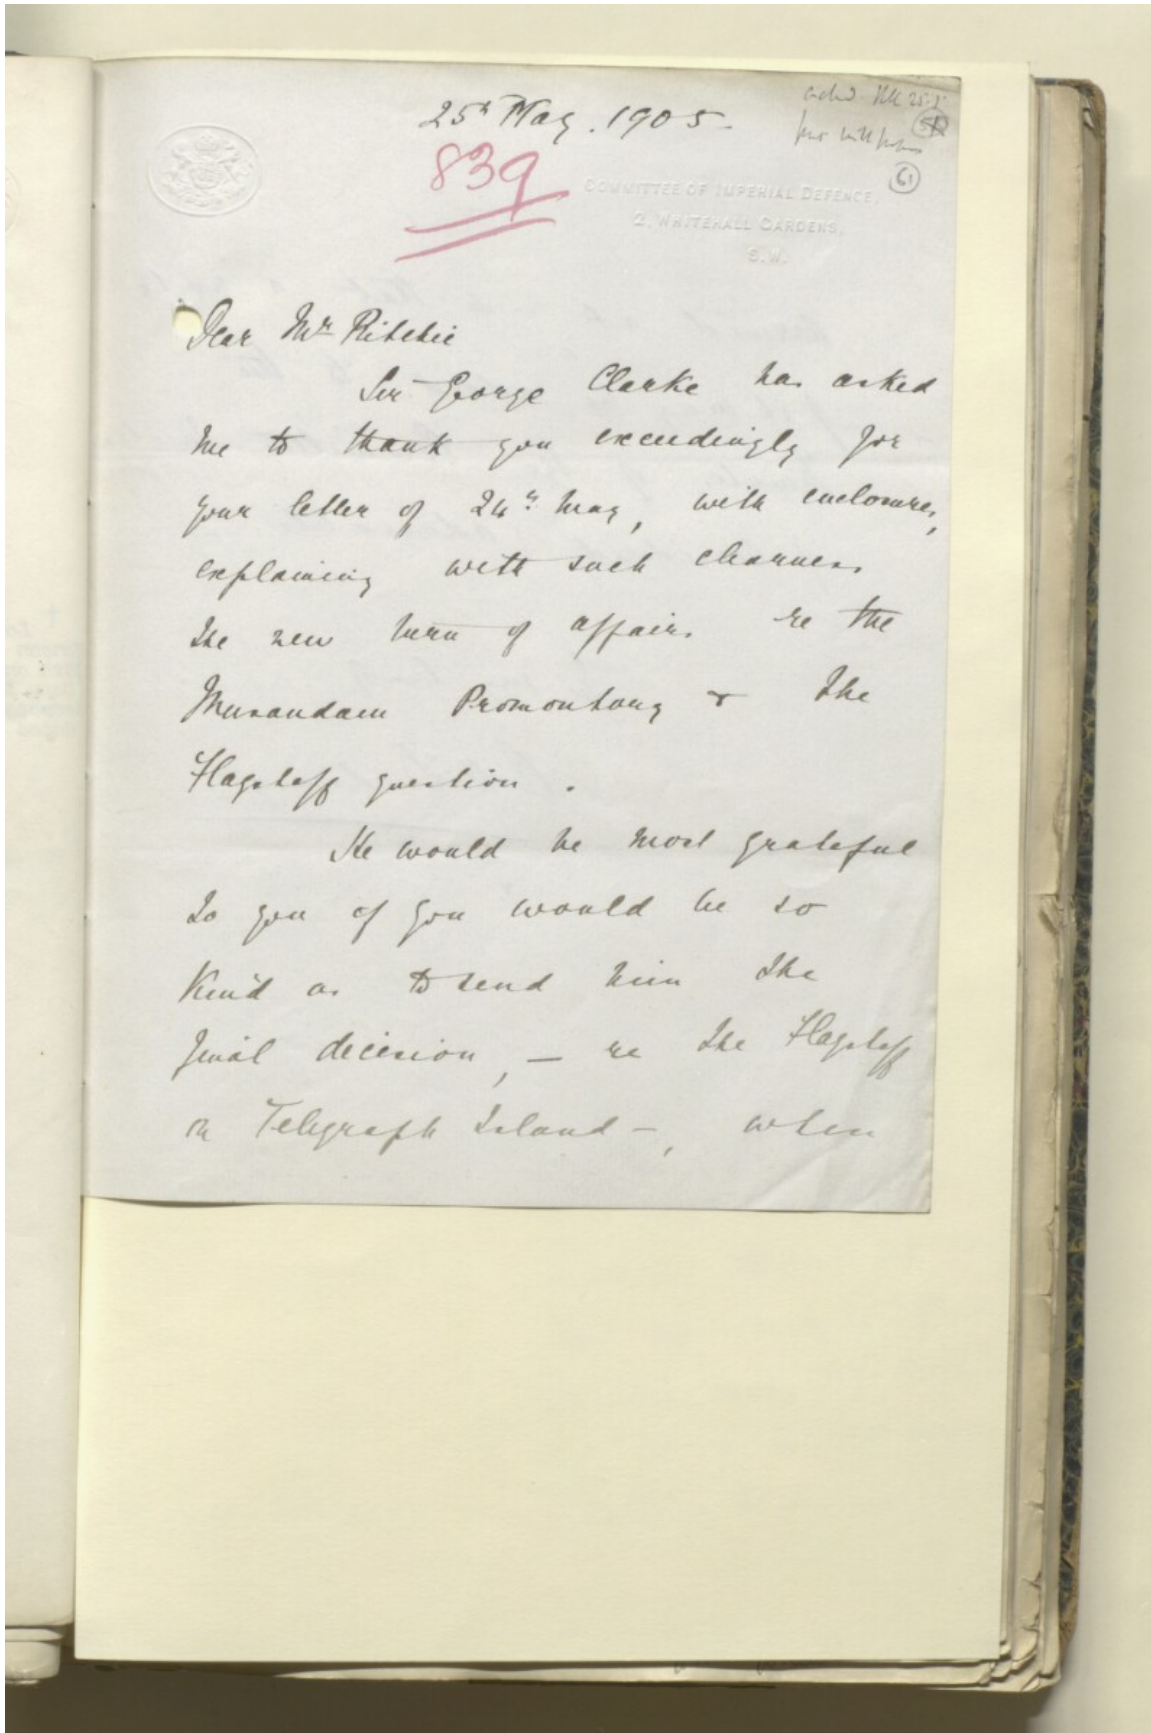 25th May. 1905.
839
61
COMMITTEE OF IMPERIAL DEFENCE,
2, WHITEHALL GARDENS,
S.W.
Dear Mr Ritchie
Sir George Clarke has asked
me to thank you exceedingly for
your letter of 24th May, with enclosures,
explaining with such clearness
the new turn of affairs re the
Musandam Promontory & the
Flagstaff question.
He would be most grateful
to you if you would be so
kind as to send him the
final decision, — re the Flagstaff
on Telegraph Island —, when